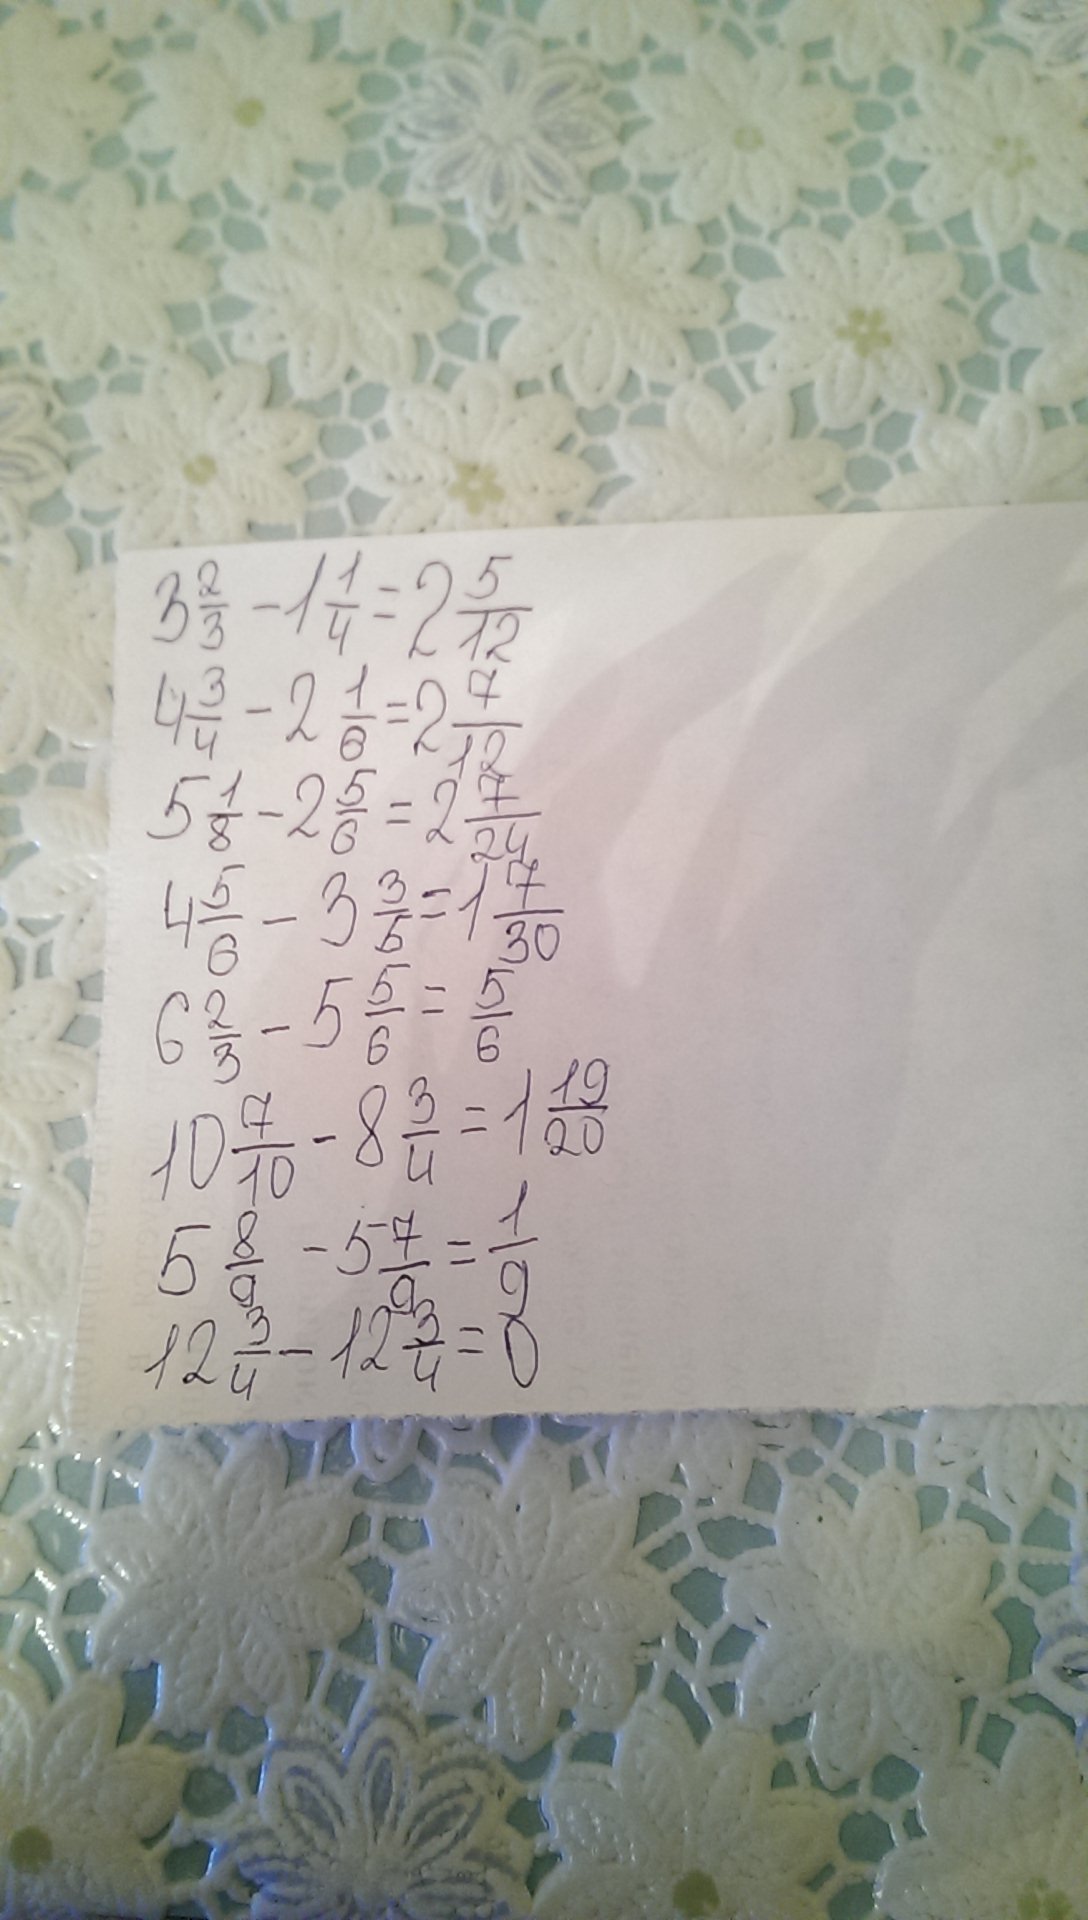 3 2/3 - 1 1/4 = 2 5/12
4 3/4 - 2 1/6 = 2 7/12
5 1/8 - 2 5/6 = 2 7/24
4 5/6 - 3 3/5 = 1 7/30
6 2/3 - 5 5/6 = 5/6
10 7/10 - 8 3/4 = 1 19/20
5 8/9 - 5 7/9 = 1/9
12 3/4 - 12 3/4 = 0